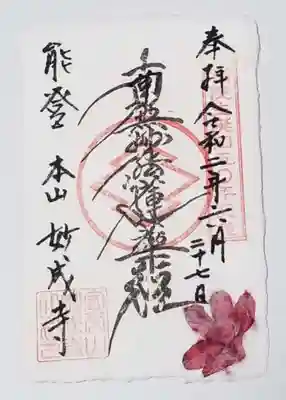 奉拝 令和二年六月
二十七日
南無妙法蓮華経
能登 本山 妙成寺